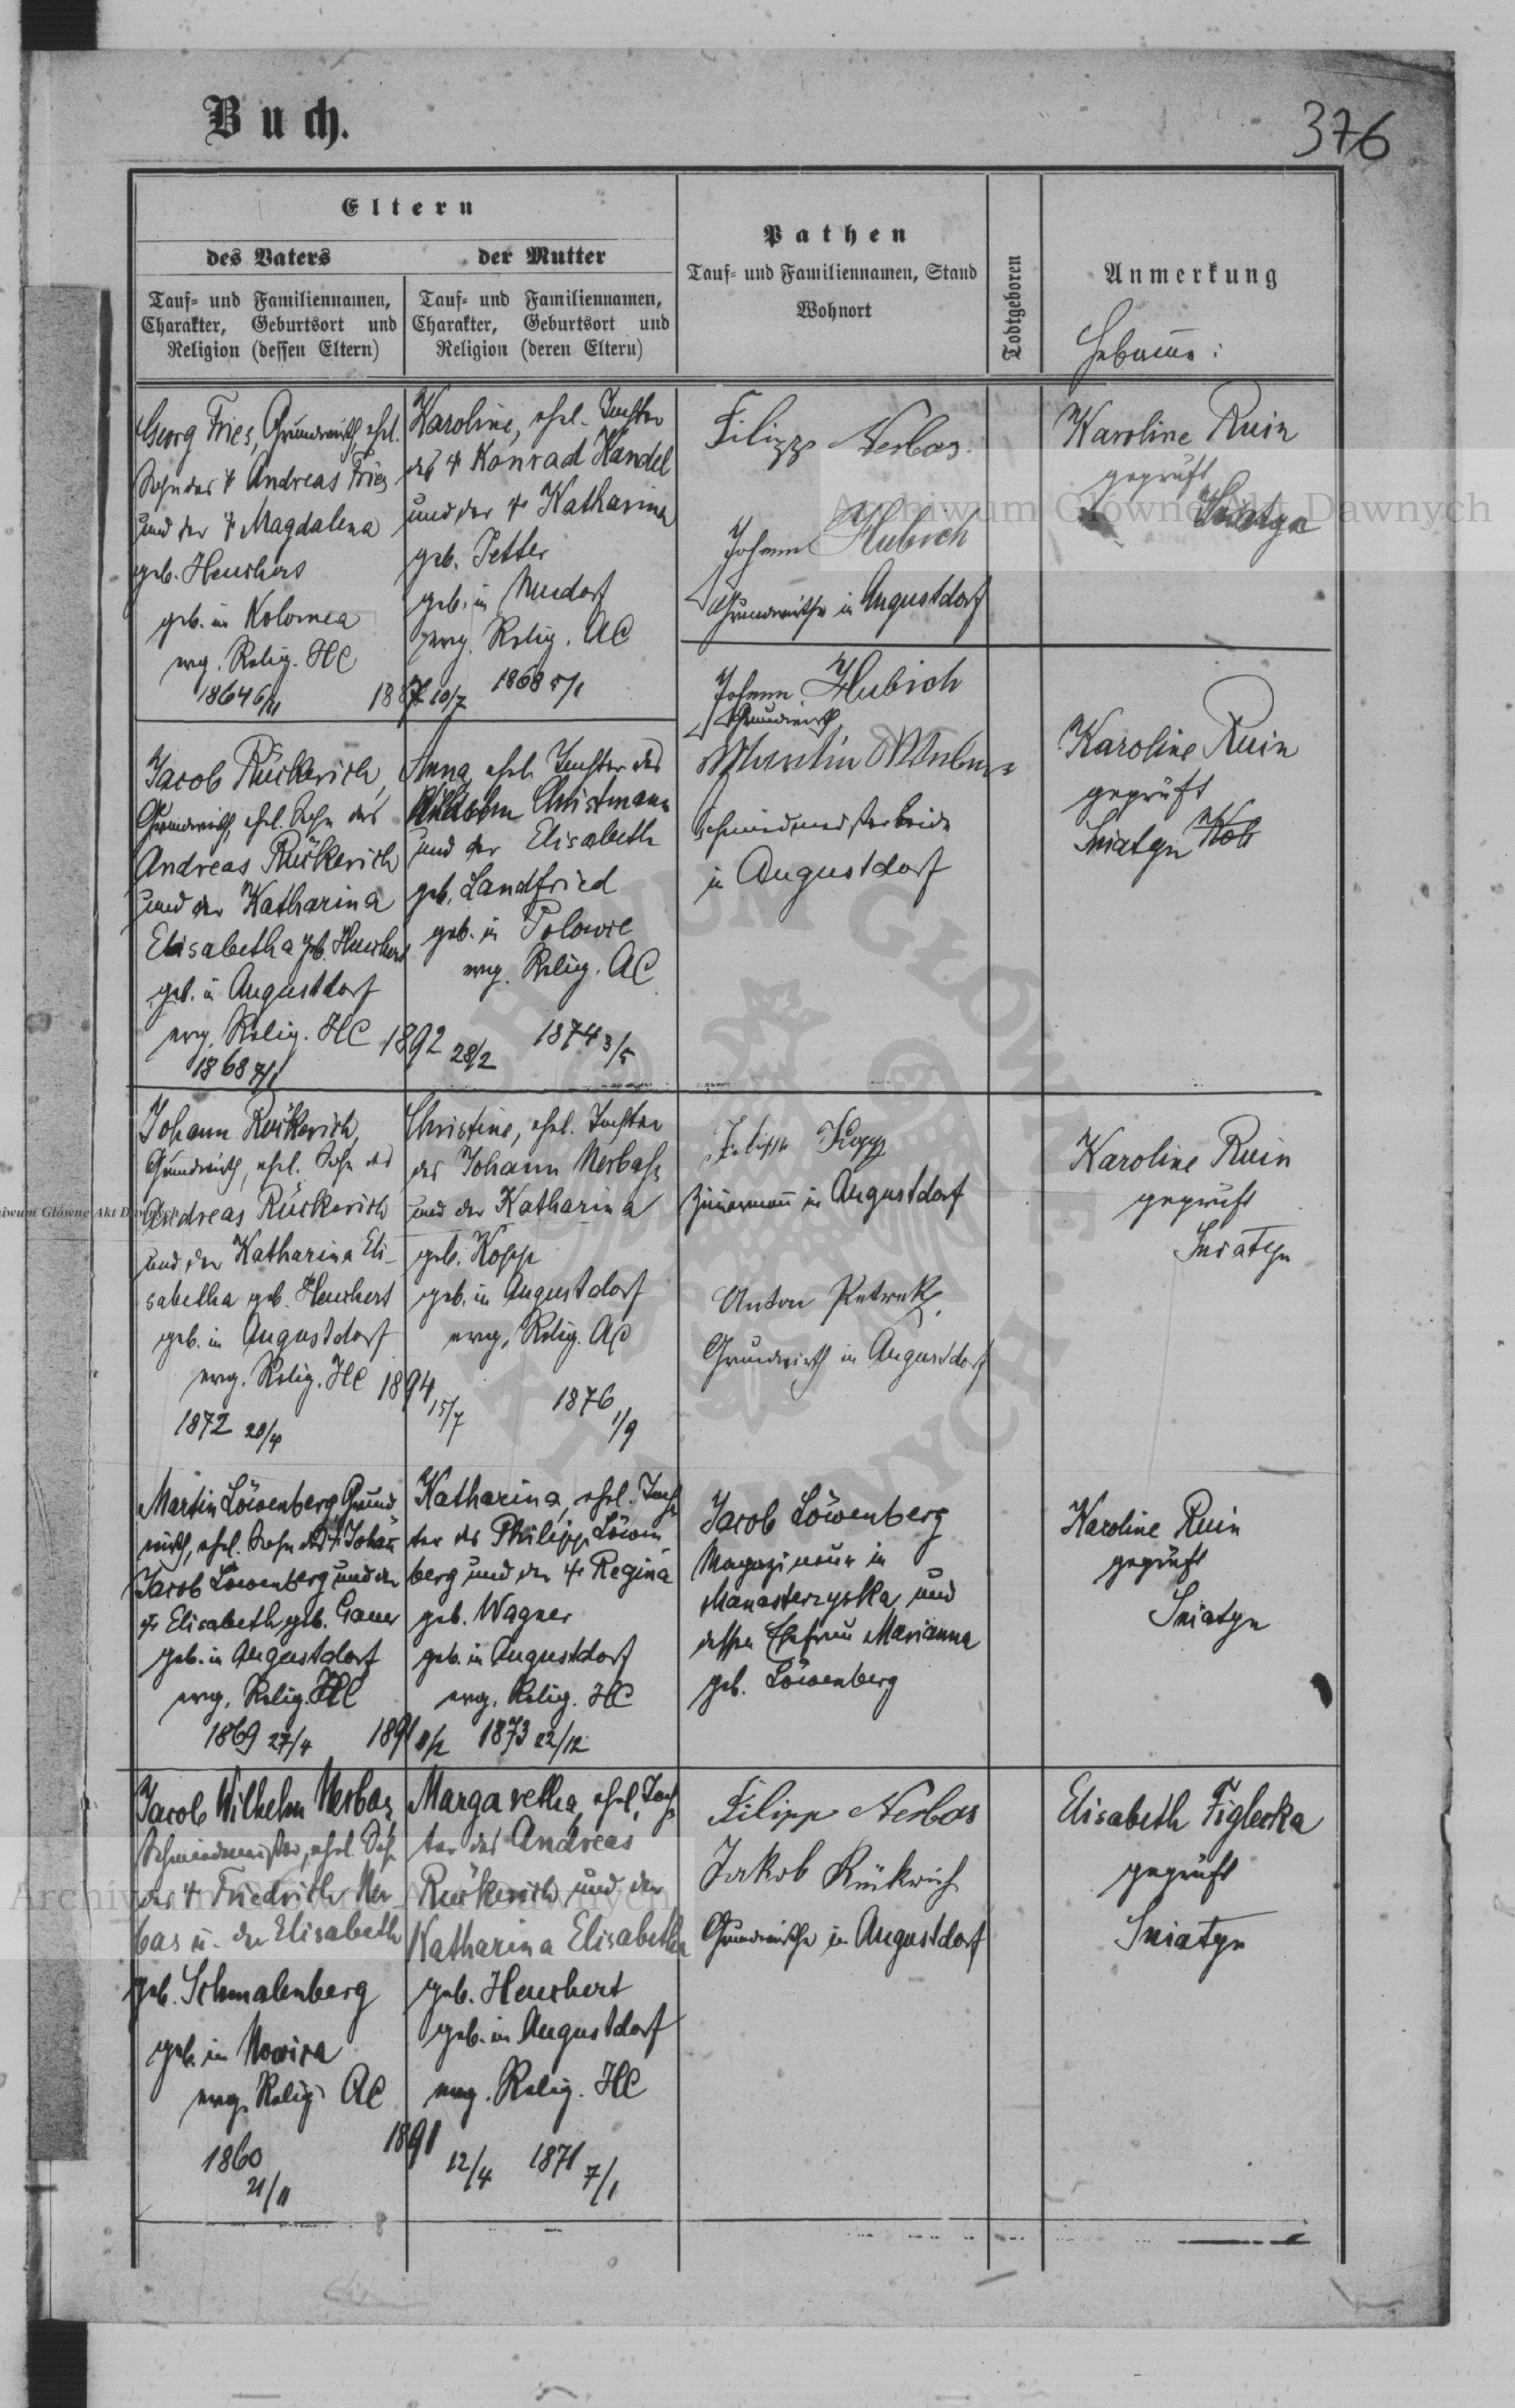 Buch.
376
Eltern
des Vaters
der Mutter
Tauf- und Familiennamen,
Charakter, Geburtsort und
Religion (dessen Eltern)
Tauf- und Familiennamen,
Charakter, Geburtsort und
Religion (deren Eltern)
Pathen
Tauf- und Familiennamen, Stand
Wohnort
Todtgeboren
Anmerkung
Hebamme:
Georg Fries, Grundwirth, ehel.
Sohn des † Andreas Fries
und der † Magdalena
geb. Heuchert
geb. in Kolomea
evg. Relig. HC
1864 6/11
1887 10/7
Karoline, ehel. Tochter
des † Konrad Kandel
und der † Katharina
geb. Jetter
geb. in Neudorf
evg. Relig. AC
1868 5/1
Filipp Nerbas.
Johann Hubich
Grundwirthe in Augustdorf
Karoline Ruin
geprüft
Sniatyn
Jacob Rückerich,
Grundwirth, ehel. Sohn des
Andreas Rückerich
und der Katharina
Elisabetha geb. Heuchert
geb. in Augustdorf
evg. Relig. HC
1868 7/1
1892 28/2
Anna, ehel. Tochter des
Christmann
und der Elisabeth
geb. Landfried
geb. in Polowce
evg. Relig. AC
1874 3/5
Johann Hubich
Grundwirth
Martin
Schmiedmeister beide
in Augustdorf
Karoline Ruin
geprüft
Sniatyn
Johann Rückerich,
Grundwirth, ehel. Sohn des
Andreas Rückerich
und der Katharina Eli-
sabetha geb. Heuchert
geb. in Augustdorf
evg. Relig. HC
1872 20/4
1894 15/7
Christine, ehel. Tochter
des Johann Nerbas
und der Katharina
geb. Kopp
geb. in Augustdorf
evg. Relig. AC
1876 1/9
Filipp Kopp
Zimmermann in Augustdorf
Anton Petrek,
Grundwirth in Augustdorf
Karoline Ruin
geprüft
Sniatyn
Martin Löwenberg Grund
wirth, ehel. Sohn des † Johann
Jacob Löwenberg und der
† Elisabeth geb. Gauer
geb. in Augustdorf
evg. Relig. HC
1869 27/4
1891 8/2
Katharina, ehel. Toch
ter des Philipp Löwen
berg und der † Regina
geb. Wagner
geb. in Augustdorf
evg. Relig. HC
1873 22/12
Jacob Löwenberg
Magazineur in
Manasterzyska und
dessen Ehefrau Marianna
geb. Löwenberg
Karoline Ruin
geprüft
Sniatyn
Jacob Wilhelm Nerbas,
Schmiedmeister, ehel. Sohn
des † Friedrich Ner
bas u. der Elisabeth
geb. Schmalenberg
geb. in Mowica
evg. Relig. AC
1860
21/11
1891
12/4
Margaretha, ehel. Toch
ter des Andreas
Rückerich und der
Katharina Elisabetha
geb. Heuchert
geb. in Augustdorf
evg. Relig. HC
1871 7/1
Filipp Nerbas
Jakob Rückrich
Grundwirthe in Augustdorf
Elisabeth Figlecka
geprüft
Sniatyn
Archiwum Główne Akt Dawnych
Archiwum Główne Akt Dawnych
iwum Główne Akt Dawnych